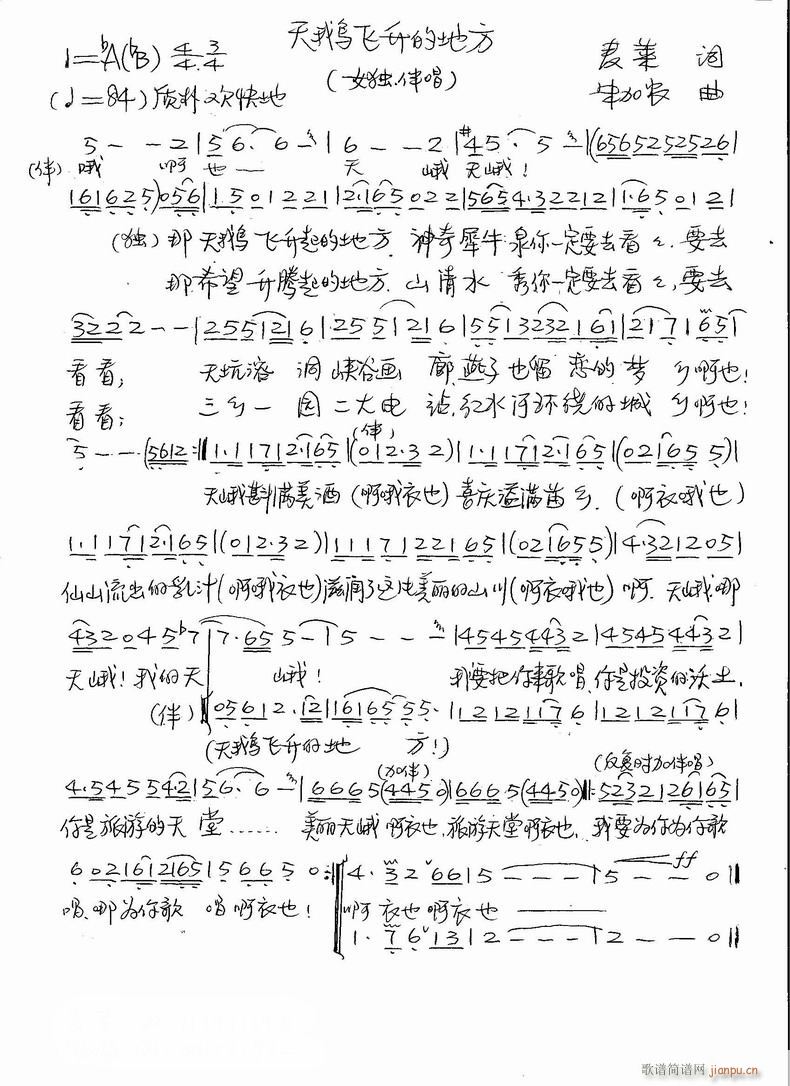 天鹅飞升的地方
1=♭A(♭B) 4/4 3/4
(女独.伴唱)
麦莱 词
(♩=84)质朴欢快地
牟加农 曲
5 - - 2 | 5 6. 6 - | 6 - - 2 | #4 5. 5 - | (6 5 6 5 2 5 2 5 2 6 |
(伴) 哦 啊 也 — 天 峨 天峨!
1 6 1 6 2 5) 0 5 6 | 1. 5 0 1 2 2 1 | 2. 1 6 5 0 2 2 | 5 6 5 4. 3 2 2 1 2 | 1. 6 5 0 1 2 |
(独) 那 天鹅飞升起的地方. 神奇犀牛泉你一定要去看看.要去
那希望升腾起的地方.山清水 秀你一定要去看看,要去
3 2 2 2 - - | 2 5 5 1 2 1 6 | 2 5 5 1 2 1 6 | 5 5 1 3 2 3 2 1 6 1 | 2 1 7 1 6 5 |
看看; 天坑溶 洞峡谷画 廊.燕子也留 恋的 梦 乡啊也!
看看; 三乡一 园二大电 站,红水河环绕的城 乡啊也!
5 - - (5 6 1 2 :‖ 1. 1 1 7 1 2. 1 6 5 | (0 1 2. 3 2) | 1. 1 1 7 1 2. 1 6 5 | (0 2 1 6 5 5) |
(伴)
天峨斟满美酒(啊哦衣也)喜庆溢满苗乡.(啊衣哦也)
1. 1 1 7 1 2. 1 6 5 | (0 1 2. 3 2) | 1 1 1 7 1 2 2 1 6 5 | (0 2 1 6 5 5) | 4. 3 2 1 2 0 5 |
仙山流出的乳汁(啊哦衣也)滋润了这片美丽的山川(啊衣哦也)啊. 天峨哪
4 3 2 0 4 5 ♭7 | 7. 6 5 5 - | 5 - - - | 4 5 4 5 4 4 3 2 | 4 5 4 5 4 4 3 2 |
天峨!我的天 峨! 我要把你来歌唱,你是投资的沃土.
(伴) 0 5 6 1 2. 1 2 | 1 6 1 6 5 5 5. | 1 2 1 2 1 1 7 6 | 1 2 1 2 1 1 7 6 |
(天鹅飞升的地 方!)
(加伴) (反复时加伴唱)
4. 5 4 5 5 4 2 | 5 6. 6 - | 6 6 6 5 (4 4 5 0) | 6 6 6 5 (4 4 5 0) ‖: 5 2 3 2 1 2 6 1 6 5 |
你是旅游的天 堂…… 美丽天峨啊衣也,旅游天堂啊衣也, 我要为你为你歌
6 0 2 1 6 1 2 1 6 5 | 5 6 6 5 0 :‖ 4. 3 2 6 6 | 5 - - - | 5 - - 0 ‖
ff
唱.哪为你歌 唱啊衣也! 啊衣也啊衣也 —
1. 7 6 1 3 | 2 - - - | 2 - - 0 ‖
歌谱简谱网
jianpu.cn